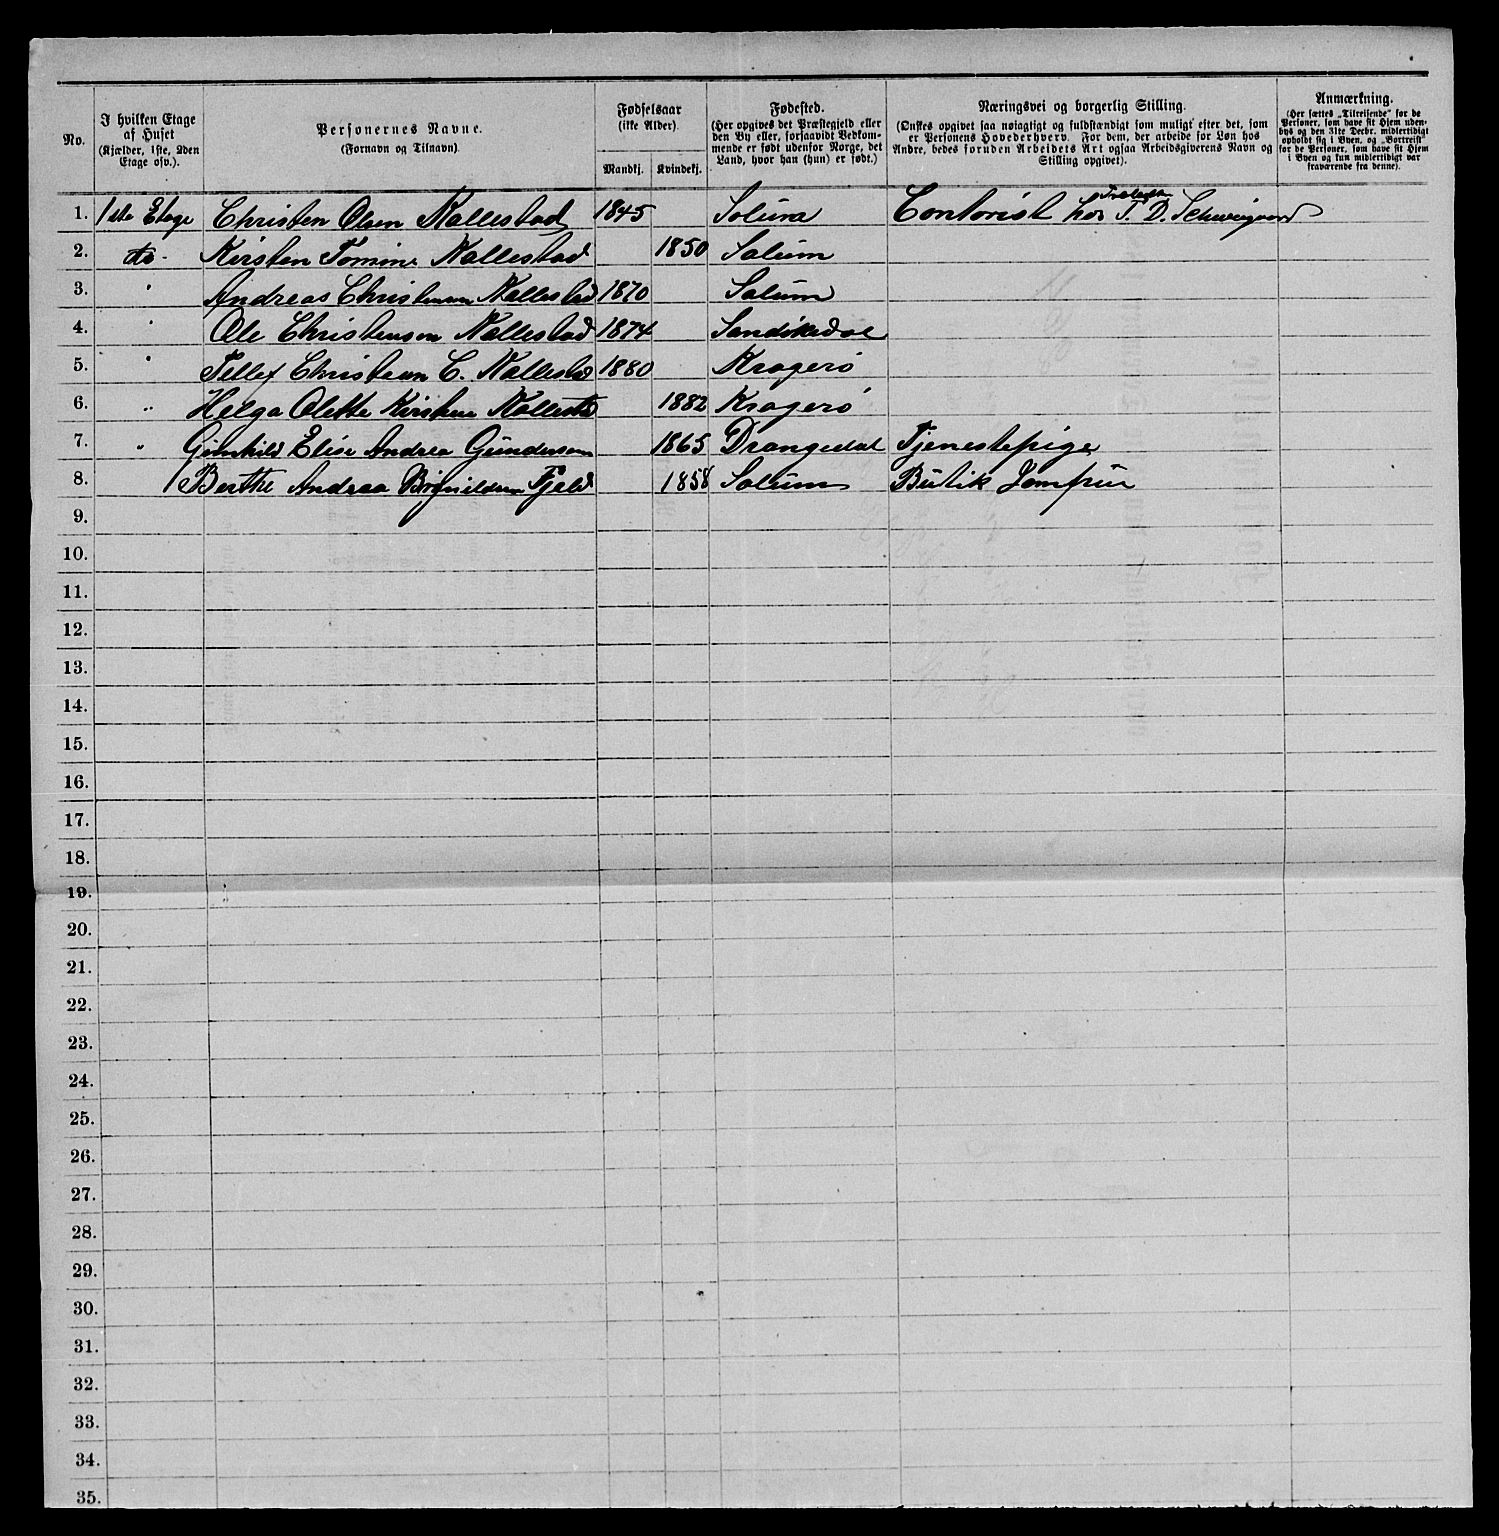 No.
I hvilken Etage af Huset (Kjælder, 1ste, 2den Etage osv.).
Personernes Navne. (Fornavn og Tilnavn).
Fødselsaar (ikke Alder).
Mandkj. Kvindekj.
Fødested. (Her opgives det Præstegjeld eller den By eller, forsaavidt Vedkommende er født udenfor Norge, det Land, hvor han (hun) er født.)
Næringsvei og borgerlig Stilling. (Ønskes opgivet saa nøiagtigt og fuldstændigt som muligt efter det, som er Personens Hovederhverv. For dem, der arbeide for Løn hos Andre, bedes foruden Arbeidets Art ogsaa Arbeidsgiverens Navn og Stilling opgivet).
Anmærkning. (Her sættes „Tilreisende" for de Personer, som have sit Hjem udenbys og den 31te Decbr. midlertidigt opholdt sig i Byen, og „Bortreist" for de Personer, som have sit Hjem i Byen og kun midlertidigt var fraværende fra denne).
1. 1ste Etage Christen Olsen Kallestad 1845 Solum Contorist hos T. D. Schweigaard
2. do. Kirsten Tomine Kallestad 1850 Solum
3. " Andreas Christensen Kallestad 1870 Solum
4. " Ole Christensen Kallestad 1874 Sandøkedal
5. " Tellef Christian C. Kallestad 1880 Kragerø
6. " Helga Olette Kirstine Kallestad 1882 Kragerø
7. " Gunhild Elise Andrea Gundersen 1865 Drangedal Tjenestepige
8. Berthe Andrea Fjeld 1858 Solum Butik Jomfru
9.
10.
11.
12.
13.
14.
15.
16.
17.
18.
19.
20.
21.
22.
23.
24.
25.
26.
27.
28.
29.
30.
31.
32.
33.
34.
35.